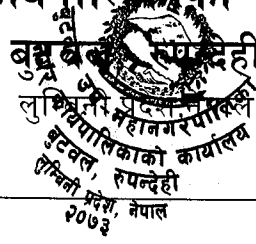 बुटवल, रुपन्देही
लुम्बिनी प्रदेश, नेपाल
उप-महानगरपालिका
कार्यपालिकाको कार्यालय
बुटवल, रुपन्देही
लुम्बिनी प्रदेश, नेपाल
२०७३